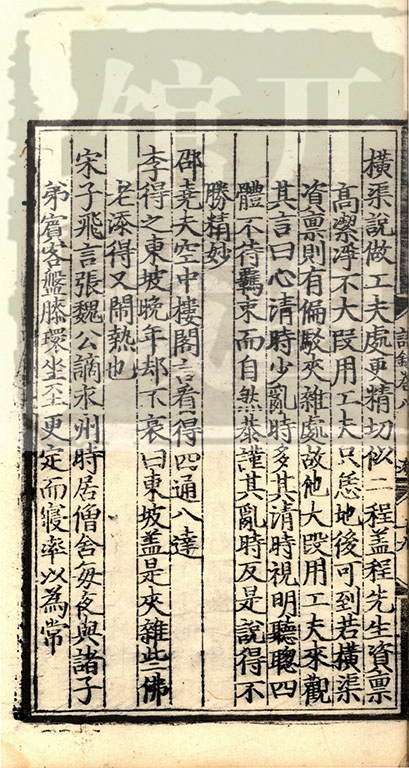 橫渠說做工夫處更精切似二程蓋程先生資禀
高潔淨不大段用工夫只恁地後可到若橫渠
資禀則有偏駁夾雜處故他大段用工夫來觀
其言曰心清時少亂時多其清時視明聽聰四
體不待羈束而自然恭謹其亂時反是說得不
勝精妙
邵堯夫空中樓閣言看得四通八達
李得之東坡晚年却不衰曰東坡蓋是夾雜些佛
老添得又鬧熱也
宋子飛言張魏公謫永州時居僧舍每夜與諸子
弟賓客盤膝環坐至更定而寢率以為常